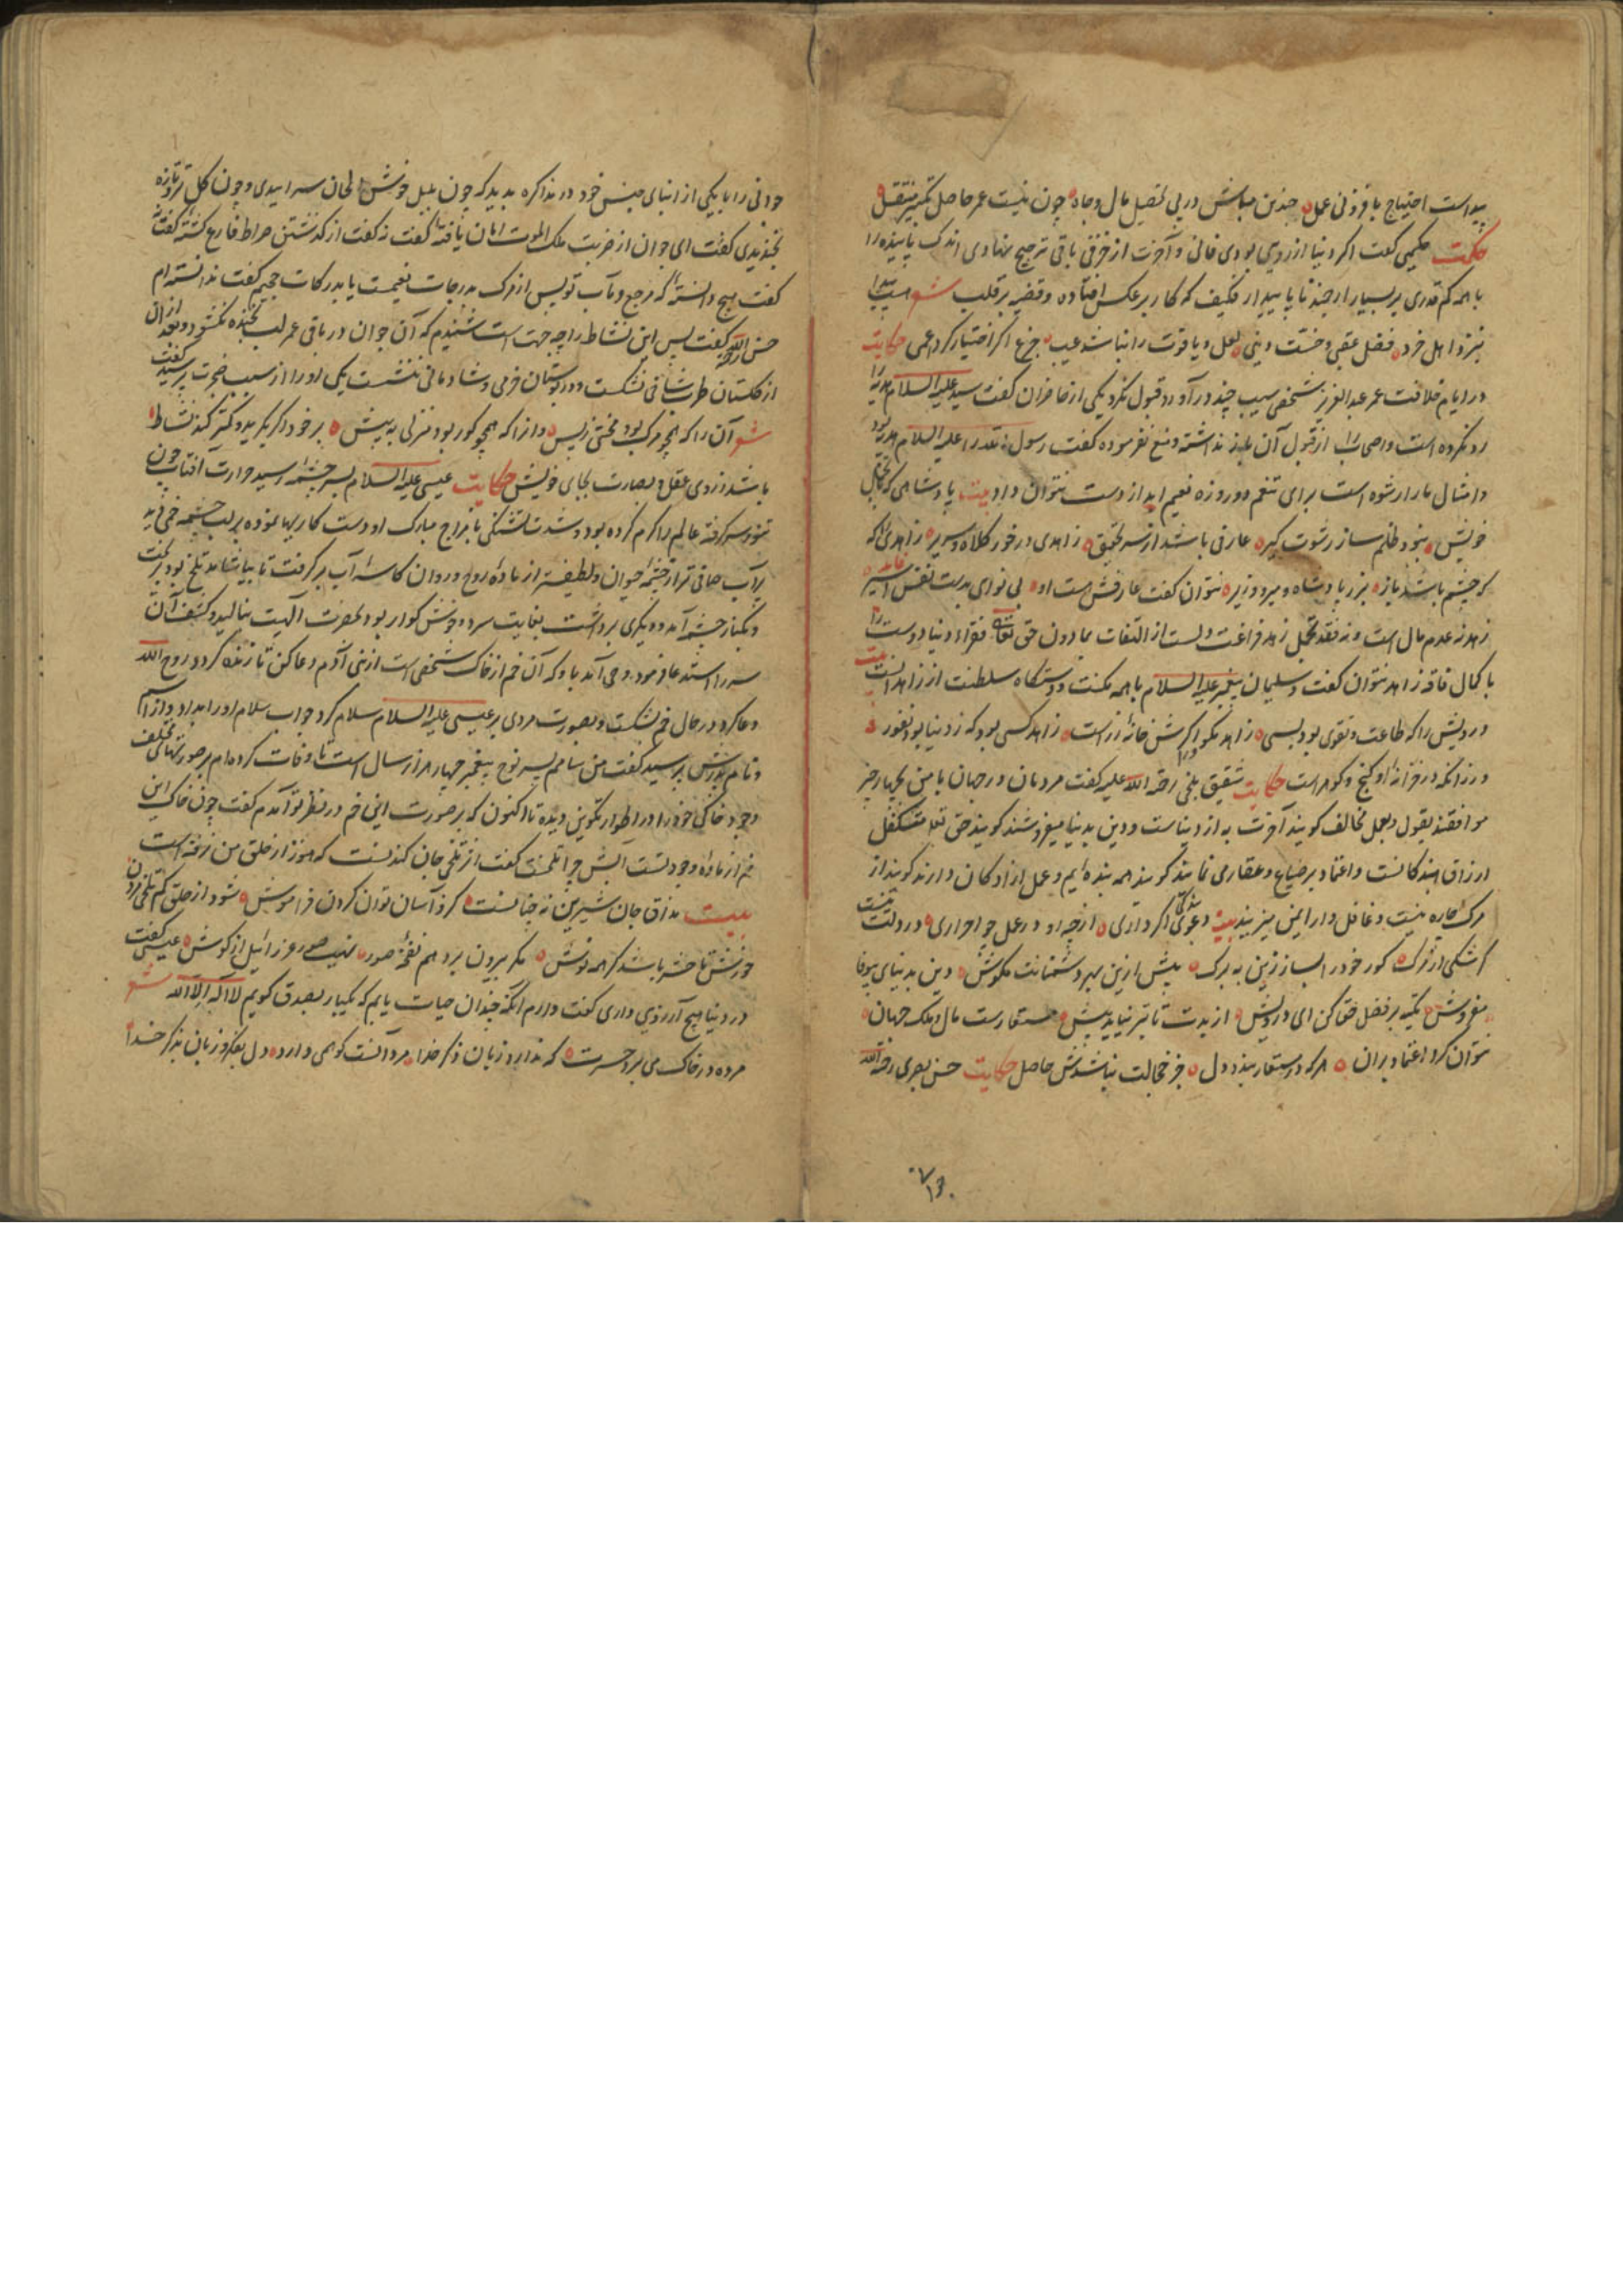 پیداست احتیاج بافزونی عمل چندین مباش در پی تحصیل مال و جاه چون نیست عمر حاصل
حکمت حکیمی گفت اگر دنیا از زر بودی فانی و آخرت از خزفی باقی ترجیح نهادی اندک پاینده را
با همه کم قدری بر بسیار ارجمند ناپایدار فکیف که کار برعکس افتاده و قضیه بر قلب است شعر
نزد اهل خرد فضل عقبی و خست دنیی لعل و یاقوت را نباشد عیب جزع اگر اختیار کرد اعمی حکایت
در ایام خلافت عمر عبدالعزیز شخصی سیب چند در آورد قبول نکرد یکی از حاضران گفت سید علیه السلام هدیه را
رد نکرده است و اصحاب از قبول آن باز نداشته و منع نفرموده گفت رسول را علیه السلام هدیه بود
و امثال ما را رشوه است برای تنعم دو روزه نعیم ابد از دست نتوان داد بیت پادشاهی که
خویش نبود ظلم ساز رشوت گیر عارفی باشد از سر تحقیق زاهدی در خور کلاه و سریر زاهدی را که
که چشم باشد باز بزر پادشاه و میر و وزیر نتوان گفت عارفش است او بی نوای بدست نفس اسیر
زهد نه عدم مال است و نه فقد تجمل زهد فراغت دلست از التفات بمادون حق تعالی فقراء دنیا دوست را
با کمال فاقه زاهد نتوان گفت و سلیمان پیغمبر علیه السلام با همه مکنت و دستگاه سلطنت از زاهدانست بیت
درویش را که طاعت و تقوی بود بسی زاهد مگو اگرش خانه زر است زاهد کسی بود که ز دنیا بود نفور
ورزانکه در خزانه او گنج و گوهر است حکایت شقیق بلخی رحمة الله علیه گفت مردمان در جهان با من بچهار چیز
موافقند بقول و بعمل مخالف گویند آخرت به از دنیاست و دین بدنیا میفروشند گویند حق تعالی متکفل
ارزاق بندگانست و اعتماد بر ضیاع و عقار می نمایند گویند همه بنده ایم و عمل آزادگان دارند گویند از
مرگ چاره نیست و غافل وار ایمن میزیند بیت دعوی بندگی اگر داری از چه رو در عمل چو احراری
گر شکی از مرگ گور خود را بساز زین به برگ پیش ازین بهر دشمنانت مکوش دین بدنیای بیوفا
مفروش تکیه بر فضل حق کن ای درویش از بدت تا بتر نیاید پیش مستعارست مال و ملک جهان
نتوان کرد اعتماد بران هر که در مستعار بندد دل جز خجالت نباشدش حاصل حکایت حسن بصری رحمه الله
جوانی را با یکی از ابنای جنس خود در مذاکره بدید که چون بلبل خوش الحان سراییدی و چون گل تر و تازه
بخندیدی گفت ای جوان از ضربت ملک الموت امان یافته گفت نه گفت از گذشتن صراط فارغ گشته گفت نه
گفت هیچ دانسته که مرجع و مآب تو پس از مرگ بدرجات نعیمست یا بدرکات جحیم گفت ندانسته ام
حسن گفت پس این نشاط را چه جهت است شنیدم که آن جوان در باقی عمر لب بخنده نگشود و بعد از آن
از گلستان طرب شاخی نشکست و در بوستان خرمی و شادمانی ننشست یکی او را از سبب ضجرت پرسید گفت
شعر آن را که همچو مرگ بود محنتی ز پس و انرا که همچو گور بود منزلی به پیش بر خود اگر بگرید و کمتر کند نشاط
باشد ز روی عقل و بصارت بجای خویش حکایت عیسی علیه السلام بسر چشمه رسید حرارت آفتاب چون
تنور سر گرفته عالم را گرم کرده بود و شدت تشنگی با مزاج مبارک او دست کاریها نموده بر لب چشمه خمی دید
پر آب صافی تر از چشمه حیوان و لطیف تر از ماده روح و روان کاسه آب برگرفت تا بیاشامد تلخ بود بریخت
و بکنار چشمه آمد و دیگری برداشت بغایت سرد و خوش گوار بود بحضرت الهیت بنالید و کشف آن
سر را استدعا فرمود وحی آمد باو که آن خم از خاک شخصی است از بنی آدم دعا کن تا زنده گردد روح الله
دعا کرد در حال خم بشکست و بصورت مردی بر عیسی علیه السلام سلام کرد جواب سلام او را بداد و از اسم
و نام پدرش پرسید گفت من سامم پسر نوح پیغمبر چهار هزار سال است تا وفات کرده ام بر صورتهای مختلف
وجود خاکی خود را در اطوار تکوین دیده تا اکنون که بر صورت این خم در نظر تو آمدم گفت چون خاک این
خم از ماده وجود تست آبش چرا تلخست گفت از تلخی جان کندنست که هنوز از حلق من نرفته است
بیت مذاق جان شیرین نه چنانست کزو آسان توان کردن فراموش شود از حلق کم تلخی مردن
خورش تا حشر باشد گر همه نوش مگر بیرون برد هم نفخه صور نهیب صور عزرائیل از گوش عیسی گفت
در دنیا هیچ آرزوی داری گفت دارم آنکه چندان حیات یابم که یکبار بصدق گویم لا اله الا الله شعر
مرده در خاک می برد حسرت که ندارد زبان ذکر خدا مرد آنست کو همی دارد دل بفکر و زبان بذکر خدا